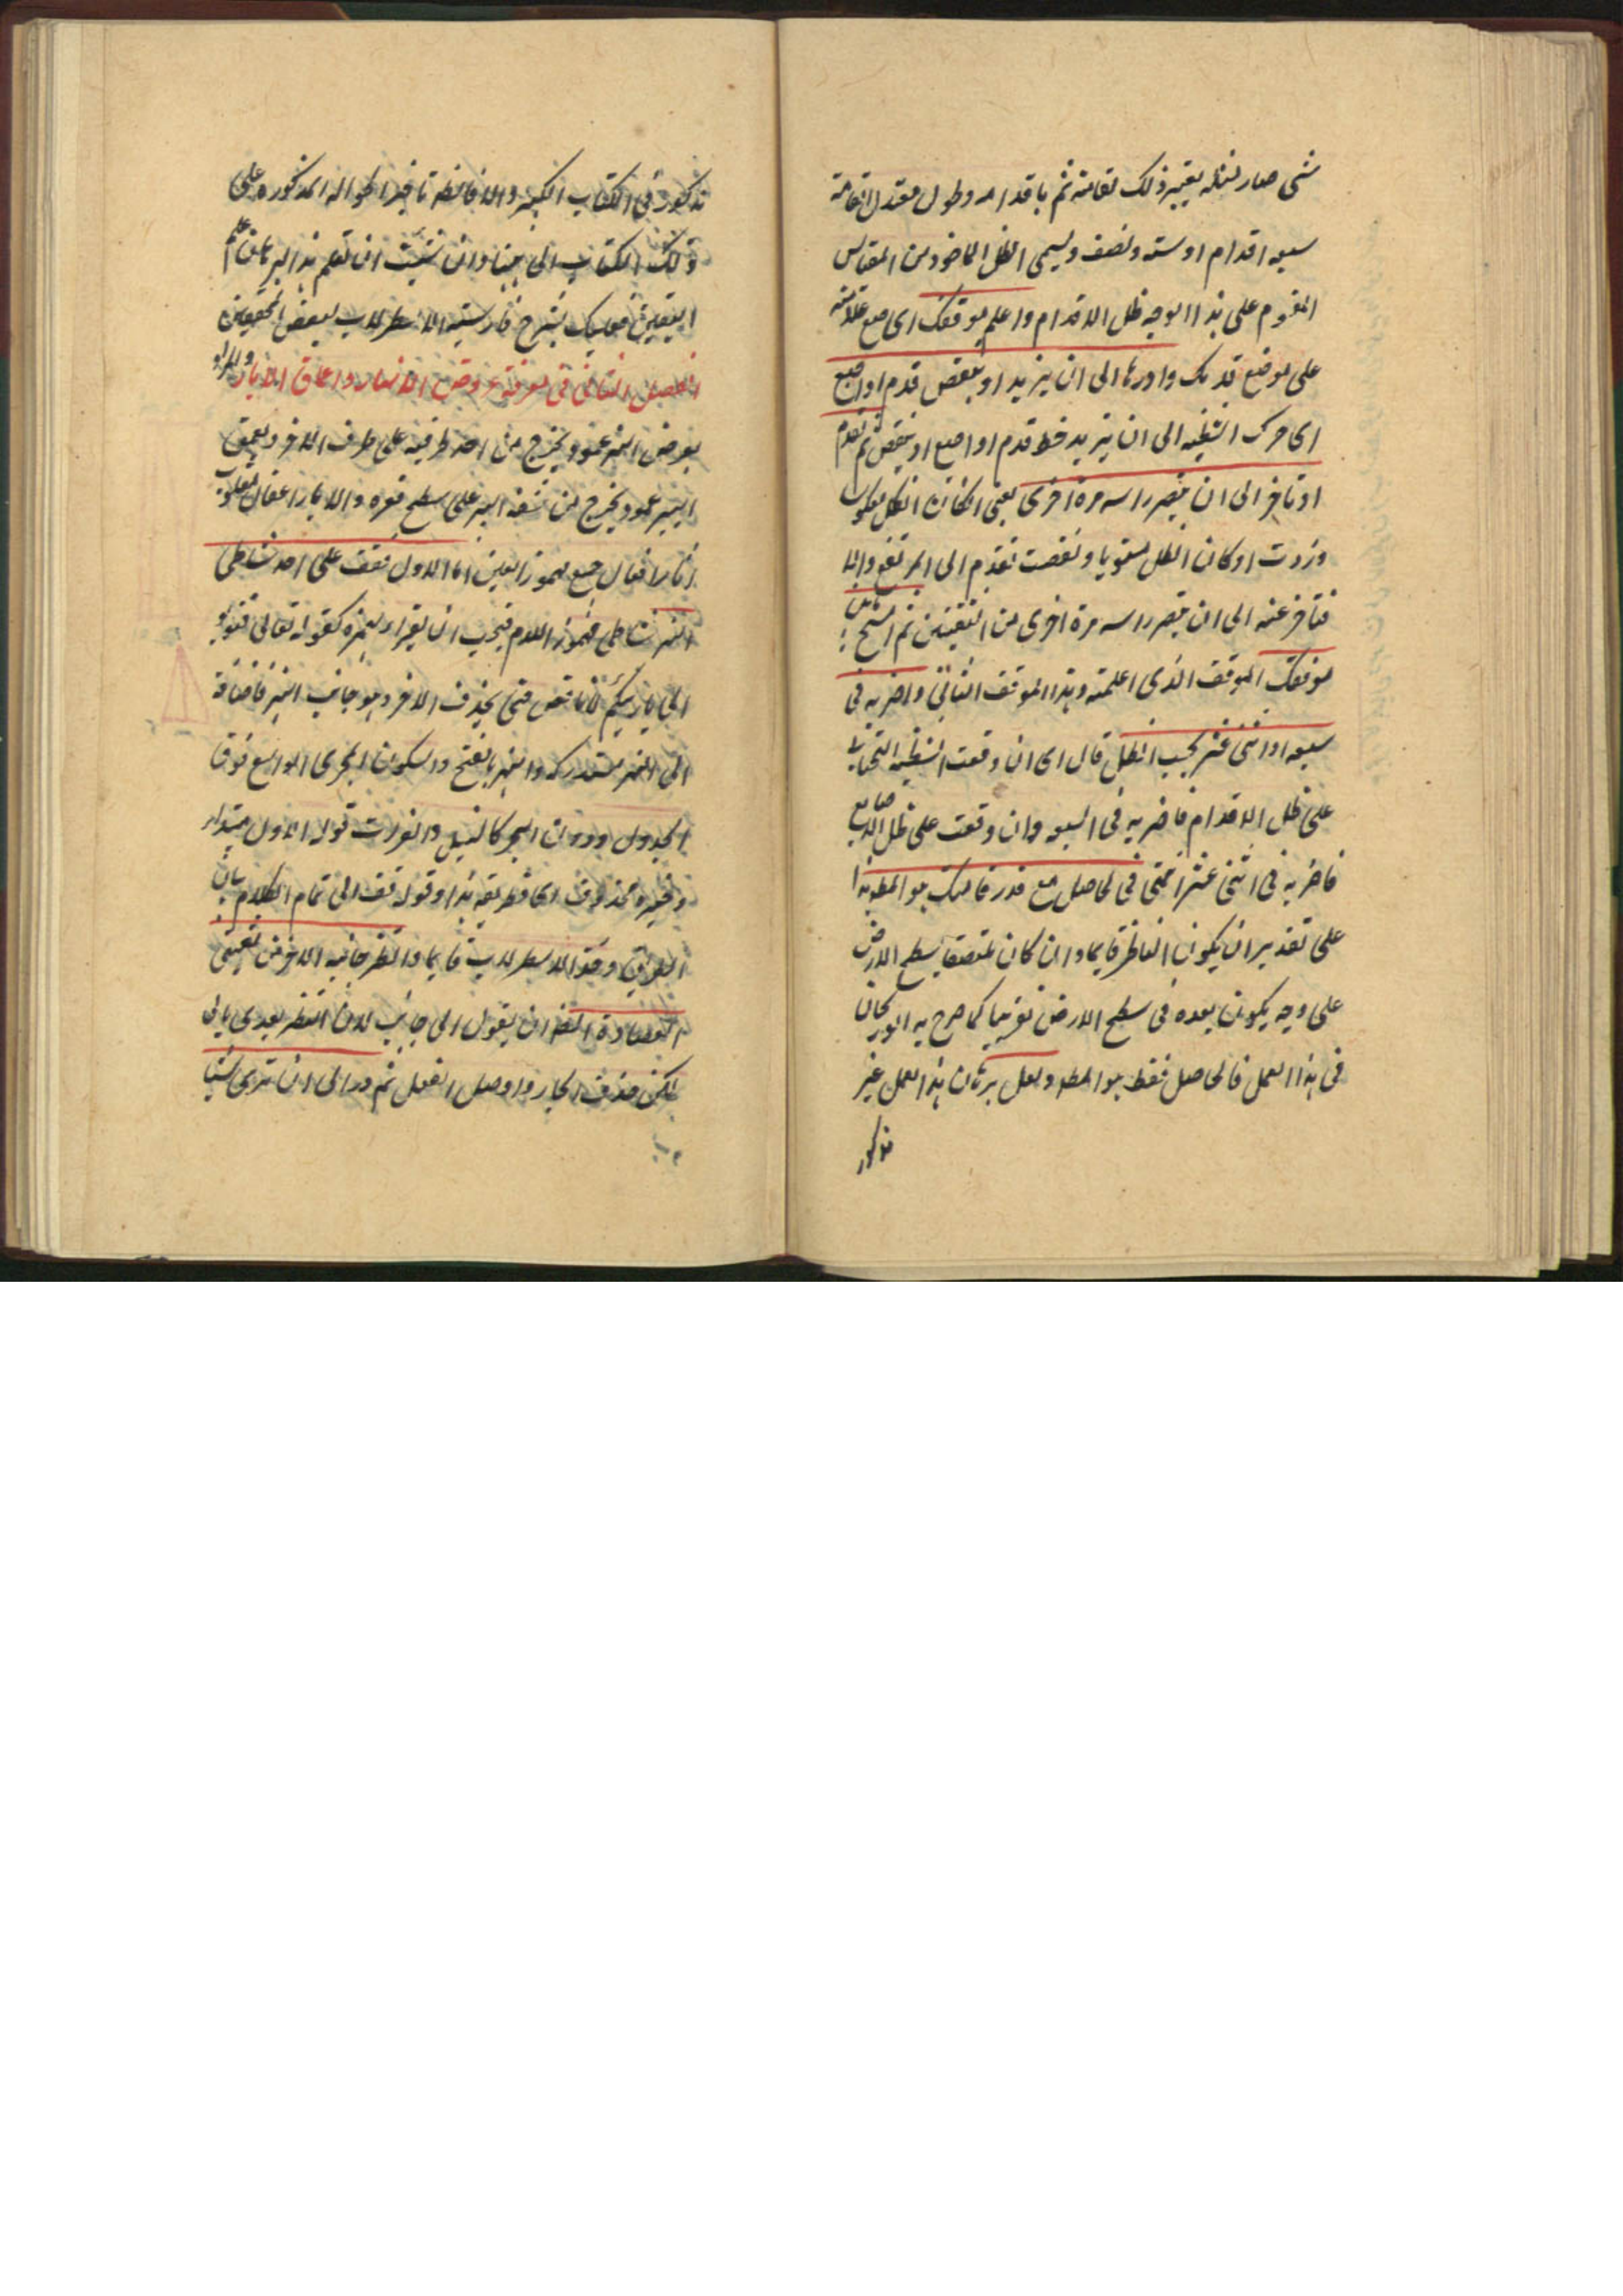 شئ صار لمثله يعتبر ذلك لقامته ثم باقدامه وطول معتدل القامة
سبعة اقدام او ستة ونصف ويسمى الظل الماخوذ من المقياس
المقسوم على هذا الوجه ظل الاقدام واعلم موقفك اى ضع علامته
على موضع قدمك وادرها الى ان يزيد او ينقص قدم او اصبع
اى حرك الشظيه الى ان يزيد خط قدم او اصبع او ينقص ثم تقدم
او تاخر الى ان تبصر راسه مرة اخرى يعنى ان كان الظل معكوسا
وزدت او كان الظل مستويا ونقصت تقدم الى المرتفع والا
فتاخر عنه الى ان تبصر راسه مرة اخرى من الثقبتين ثم امسح ما بين
موقفك الموقف الذى اعلمته وهذا الموقف الثانى واضربه فى
سبعه او اثنى عشر بحسب الظل قال اى ان وقعت الشظيه التحتانية
على ظل الاقدام فاضربه فى السبعه وان وقعت على ظل الاصابع
فاضربه فى اثنى عشر فالحاصل مع قدر قامتك هو المطه هذا
على تقدير ان يكون الناظر قايما وان كان ملتصقا بسطح الارض
على وجه يكون بعده فى سطح الارض تقريبا كما صرح به ابو ريحان
فى هذا العمل فالحاصل فقط هو المطه ولعل برهان هذا العمل غير
مذكور
مذكور فى الكتاب الكبير والا فانظه تاخير الحواله المذكوره على
ذلك الكتاب الى هنا وان شئت ان تعلم هذا البرهان علم
اليقين فعليك بشرح فارسية الاسطرلاب لبعض المحققين
الفصل الثانى فى معرفة عروض الانهار واعماق الابار والمراد
بعرض النهر عمود يخرج من احد طرفيه على طرف الاخر وبعمق
البير عمود يخرج من شفة البير على سطح قعره والابار اعفال مقلوب
اما الاول فقف على احد شاطى
النهر شاطى مهموز اللام فيجب ان يقراء بهمزه كقوله تعالى فتوبوا
الى بارئكم لا ناقص حتى يحذف الاخر وهو جانب النهر فاضافة
الى النهر مستدركه والنهر بالفتح والسكون المجرى الواسع فوق
الجدول ودون البحر كالنيل والفرات قوله الاول مبتداء
وخبره محذوف اى فطريقه هذا وقوله فقف الى تمام الكلام بيان
الطريق وخذ الاسطرلاب قايما وانظر جانبه الاخر من ثقبتى
العضادة الظه ان يقول الى جانب لان النظر يعدى بالى
لكن حذف الجار واوصل الفعل ثم در الى ان ترى شيئا